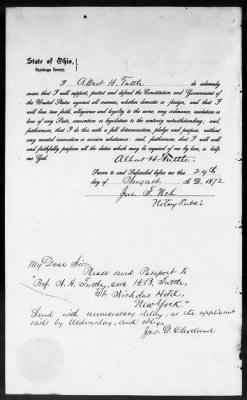 State of Ohio,
Cuyahoga County.
I Albert H. Tuttle do solemnly
swear that I will support, protect and defend the Constitution and Government of
the United States against all enemies, whether domestic or foreign, and that I
will bear true faith, allegiance and loyalty to the same, any ordinance, resolution or
law of any State, convention or legislature to the contrary notwithstanding, and,
furthermore, that I do this with a full determination, pledge and purpose, without
any mental reservation or evasion whatsoever; and, furthermore, that I will well
and faithfully perform all the duties which may be required of me by law, so help
me God.
Albert H. Tuttle
Sworn to and Subscribed before me this 29th
day of August A. D. 1872
Jas. F.
Notary Public
My Dear Sir,
Please send Passport to
Prof. A. H. Tuttle, care H. B. Tuttle,
St. Nicholas Hotel,
New York.
Send with unnecessary delay, as the applicant
sails by Wednesday, and oblige
Jas. D. Cleveland